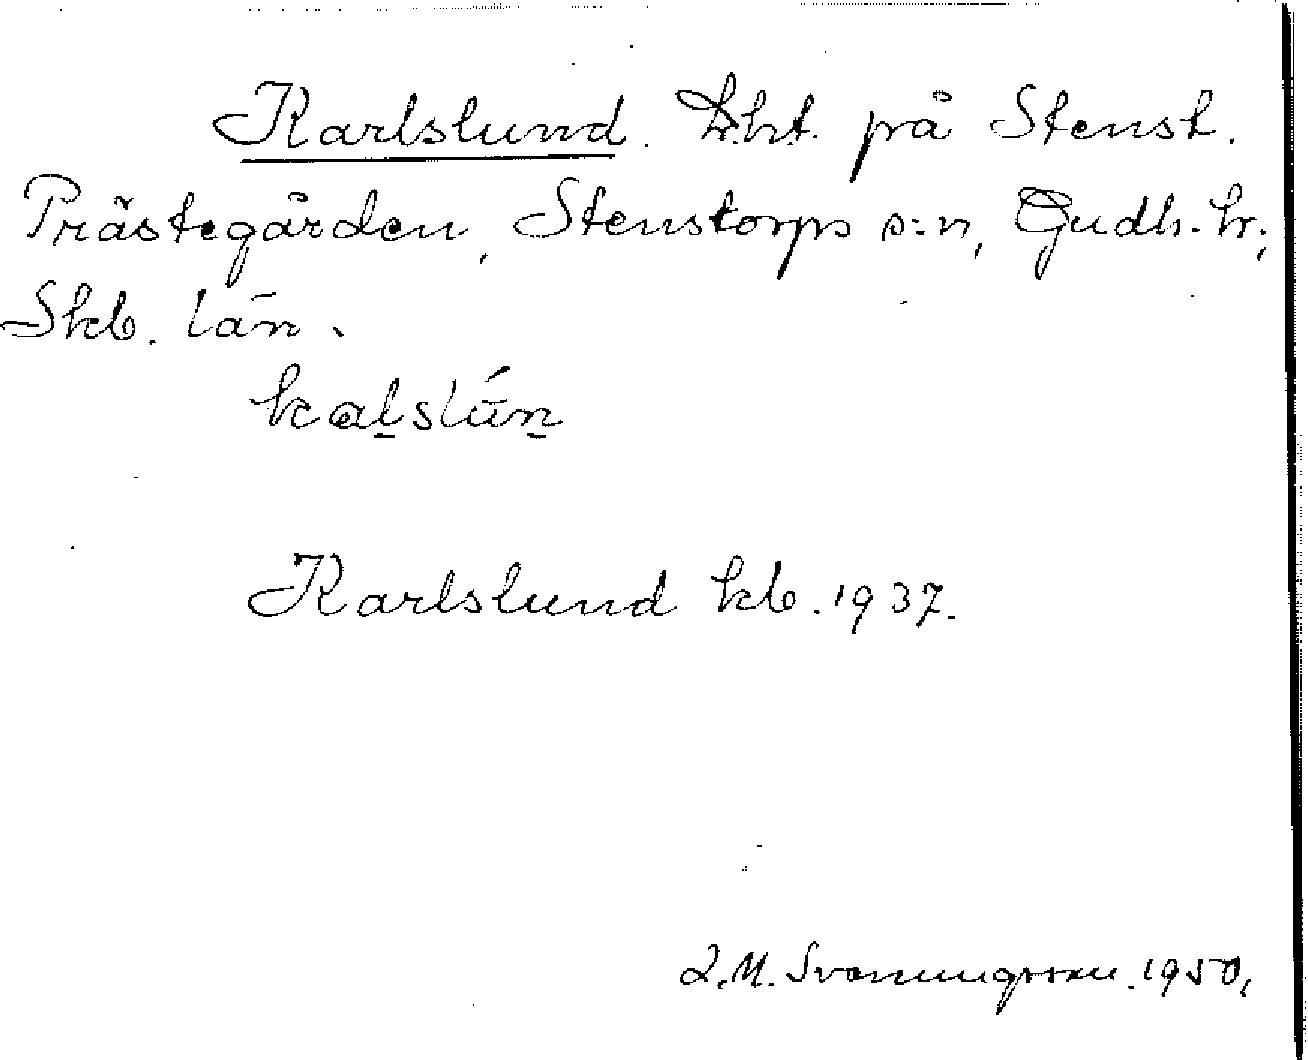 Karlslund. Lht. på Stenst.
Prästegården, Stenstorps s:n, Gudh. hr.,
Skb. län.
kal̠slún̠
Karlslund kb. 1937.
L.M. Svenungsson. 1950.